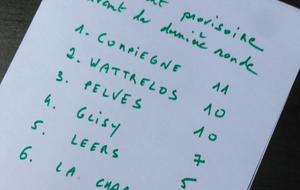 t provisoire
avant la dernière ronde
1. COMPIEGNE 11
2. WATTRELOS 10
3. PELVES 10
4. GLISY 7
5. LEERS 5
6. LA CHAP